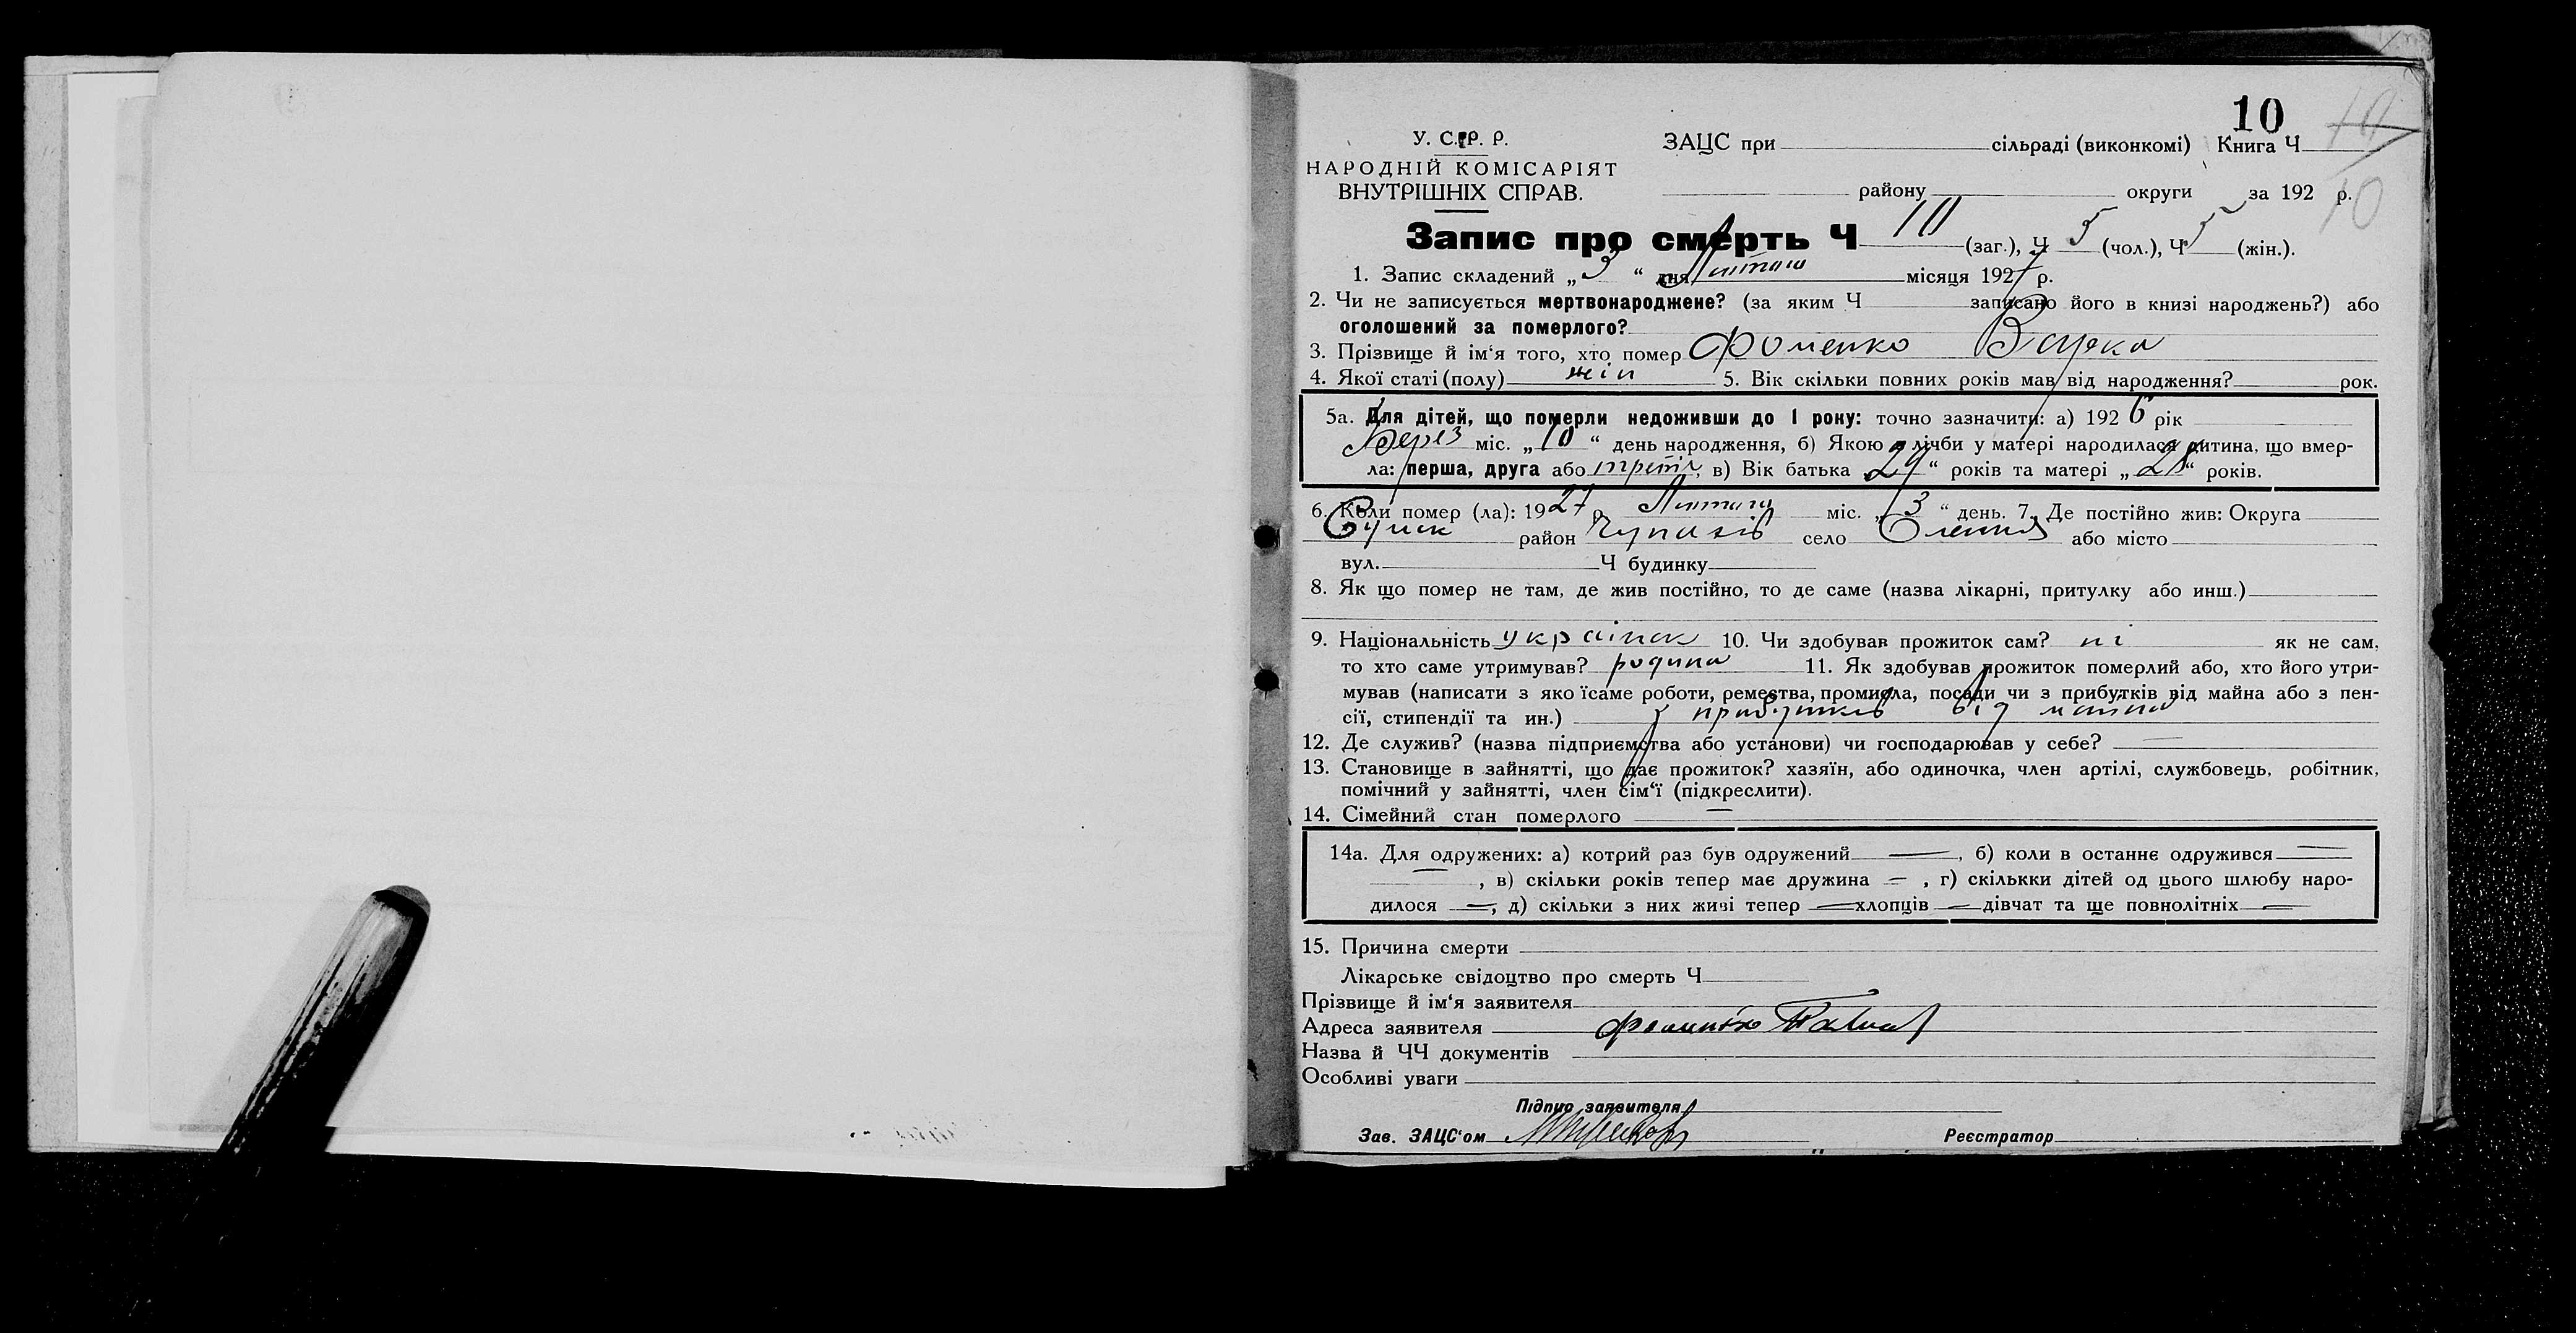 10
У. С. Р. Р.
ЗАЦС при сільраді (виконкомі) Книга Ч 10
НАРОДНІЙ КОМІСАРІЯТ
ВНУТРІШНІХ СПРАВ.
району округи за 192 р.
10
Запис про смерть Ч 10 (заг.), Ч 5 (чол.), Ч 5 (жін.).
1. Запис складений „3“ дня Лютого місяця 1927 р.
2. Чи не записується мертвонароджене? (за яким Ч записано його в книзі народжень?) або
оголошений за померлого?
3. Прізвище й ім‘я того, хто помер Фоменко
4. Якої статі (полу) жін 5. Вік скільки повних років мав від народження? рок.
5а. Для дітей, що померли недоживши до 1 року: точно зазначити: а) 1926 рік
Берез міс. „10“ день народження, б) Якою з лічби у матері народилася дитина, що вмер-
ла: перша, друга або третя, в) Вік батька „29“ років та матері „28“ років.
6. Коли помер (ла): 1927 р. Лютого міс. „3“ день. 7. Де постійно жив: Округа
Сумск район село або місто
вул. Ч будинку
8. Як що помер не там, де жив постійно, то де саме (назва лікарні, притулку або инш.)
9. Національність українк 10. Чи здобував прожиток сам? ні як не сам,
то хто саме утримував? родина 11. Як здобував прожиток померлий або, хто його утри-
мував (написати з яко їсаме роботи, ремества, промисла, посади чи з прибутків від майна або з пен-
сії, стипендії та ин.) з прибутків від майна
12. Де служив? (назва підприємства або установи) чи господарював у себе? —
13. Становище в зайнятті, що дає прожиток? хазяїн, або одиночка, член артілі, службовець, робітник,
помічний у зайнятті, член сім‘ї (підкреслити).
14. Сімейний стан померлого —
14а. Для одружених: а) котрий раз був одружений —, б) коли в останнє одружився —
—, в) скільки років тепер має дружина —, г) скількки дітей од цього шлюбу наро-
дилося —, д) скільки з них живі тепер — хлопців — дівчат та ще повнолітніх —
15. Причина смерти
Лікарське свідоцтво про смерть Ч
Прізвище й ім‘я заявителя
Адреса заявителя Фоменко
Назва й ЧЧ документів
Особливі уваги
Підпис заявителя
Зав. ЗАЦС‘ом Реєстратор